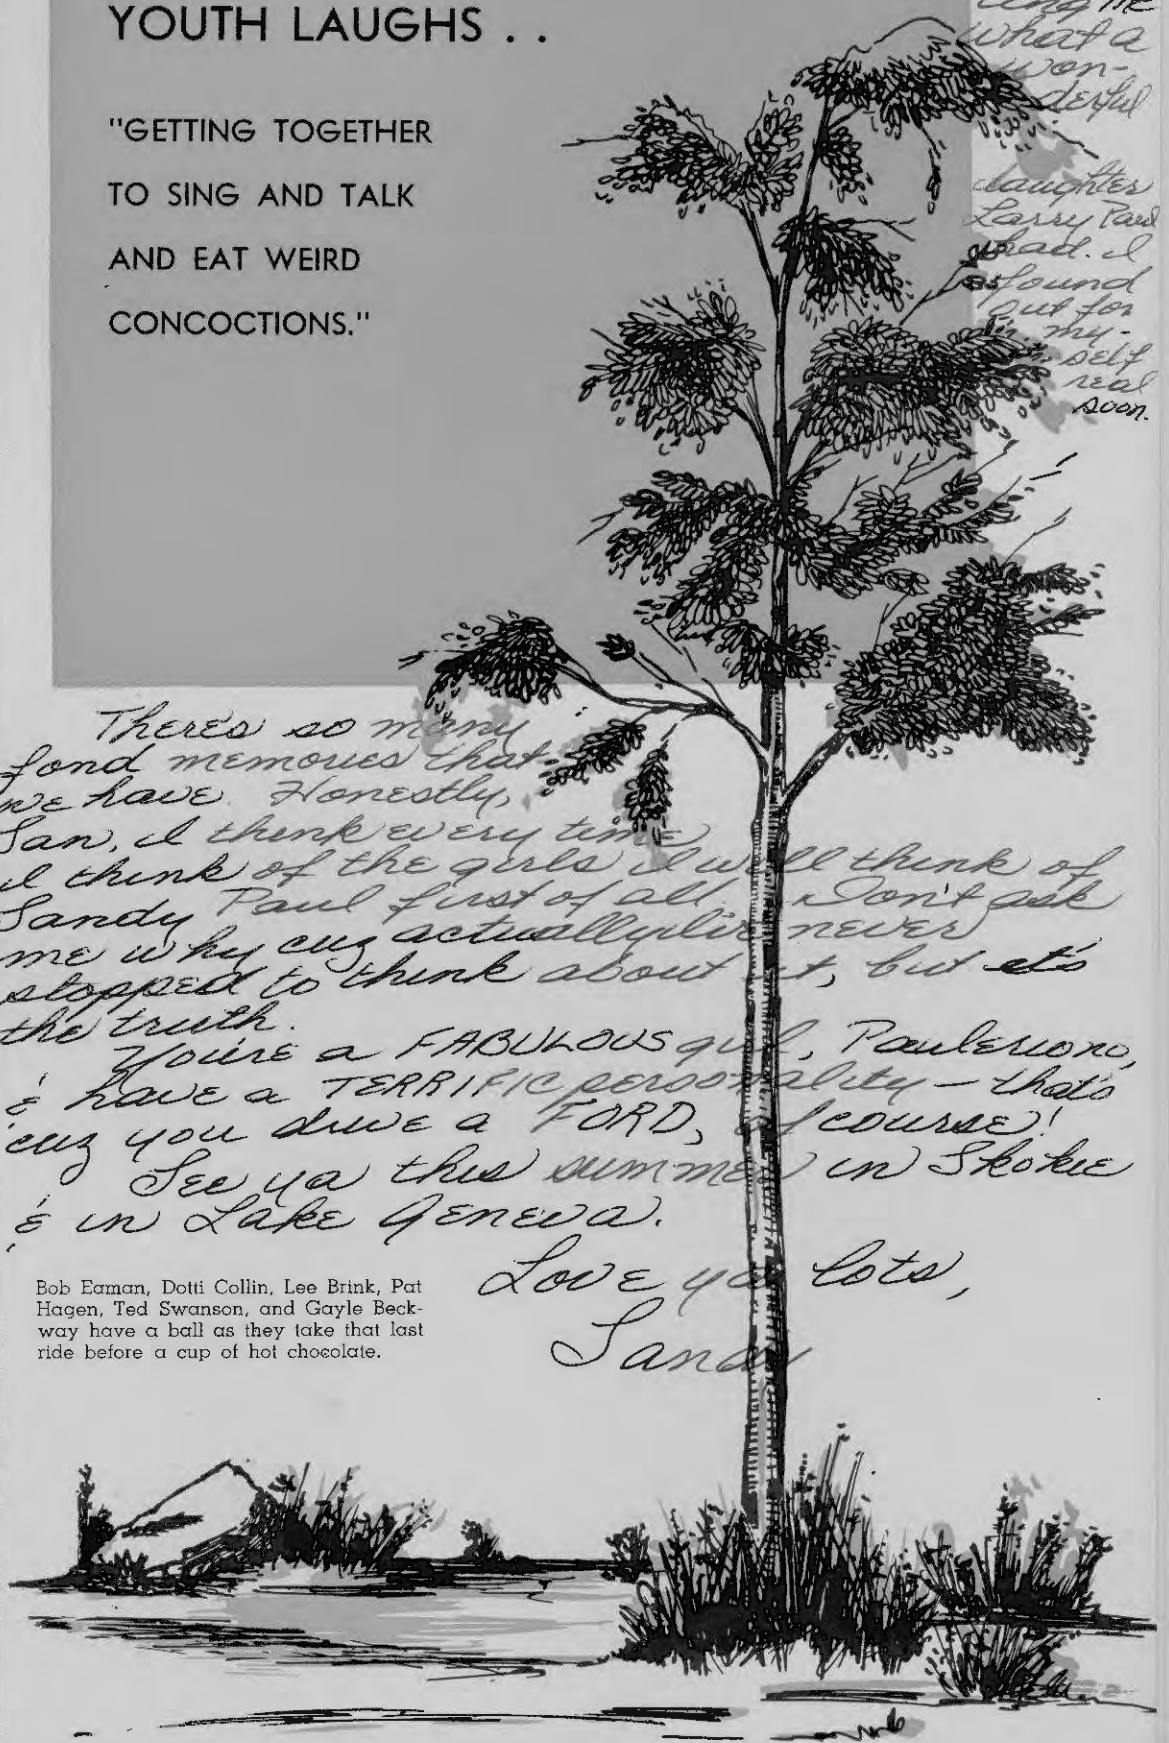 YOUTH LAUGHS . .
"GETTING TOGETHER
TO SING AND TALK
AND EAT WEIRD
CONCOCTIONS."
me
what a
won-
derful
daughter
Larry Paul
had. I
found
out for
my-
self
real
soon.
There's so many
fond memories that
we have. Honestly,
San, I think every time
I think of the girls I will think of
Sandy Paul first of all. Don't ask
me why cuz actually I've never
stopped to think about it, but it's
the truth.
You're a FABULOUS girl,
& have a TERRIFIC personality – that's
cuz you drive a FORD, of course!
See ya this summer in Skokie
& in Lake Geneva.
Love ya lots,
Sandy
Bob Eaman, Dotti Collin, Lee Brink, Pat
Hagen, Ted Swanson, and Gayle Beck-
way have a ball as they take that last
ride before a cup of hot chocolate.